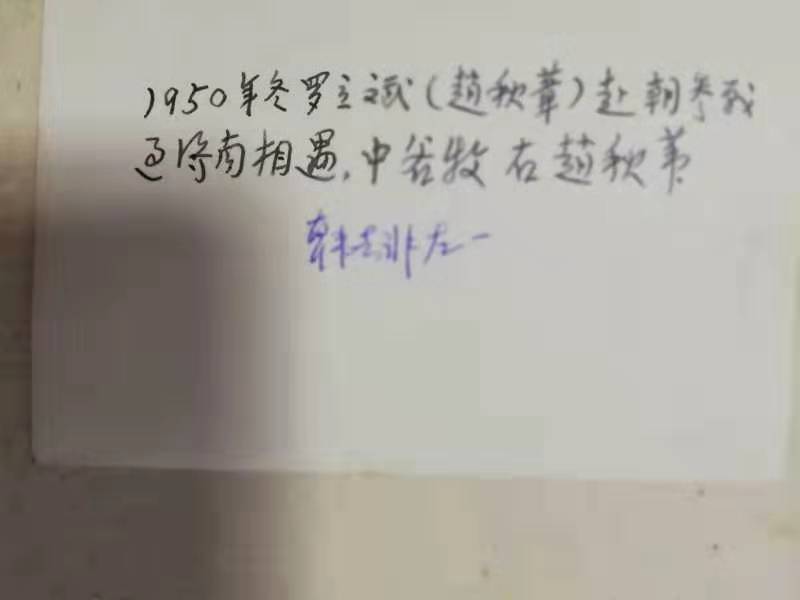 1950年冬罗立斌(趙秋葦)赴朝参战
过济南相遇,中谷牧右趙秋苇
韩 非左一